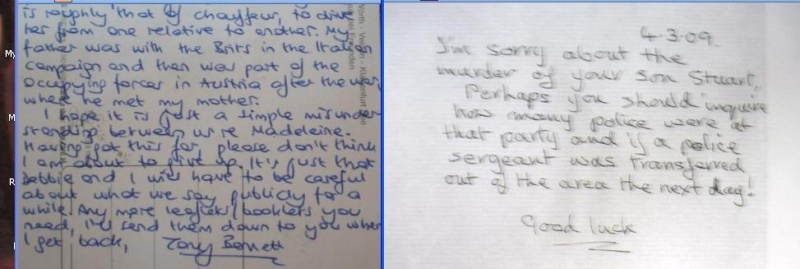 is roughly that of chauffeur, to drive
her from one relative to another. My
father was with the Brits in the Italian
Campaign and then was part of the
Occupying forces in Austria after the war,
where he met my mother.
I hope it is just a simple misunder-
standing between us re Madeleine.
Having got this far, please don't think
I am about to give up. It's just that
Debbie and I will have to be careful
about what we say publicly for a
while. Any more leaflets/booklets you
need, I'll send them down to you when
I get back,
Tony Bennett
4.3.09.
I'm sorry about the
murder of your son Stuart,
Perhaps you should inquire
how many police were at
that party and if a police
sergeant was transferred
out of the area the next day!
Good luck